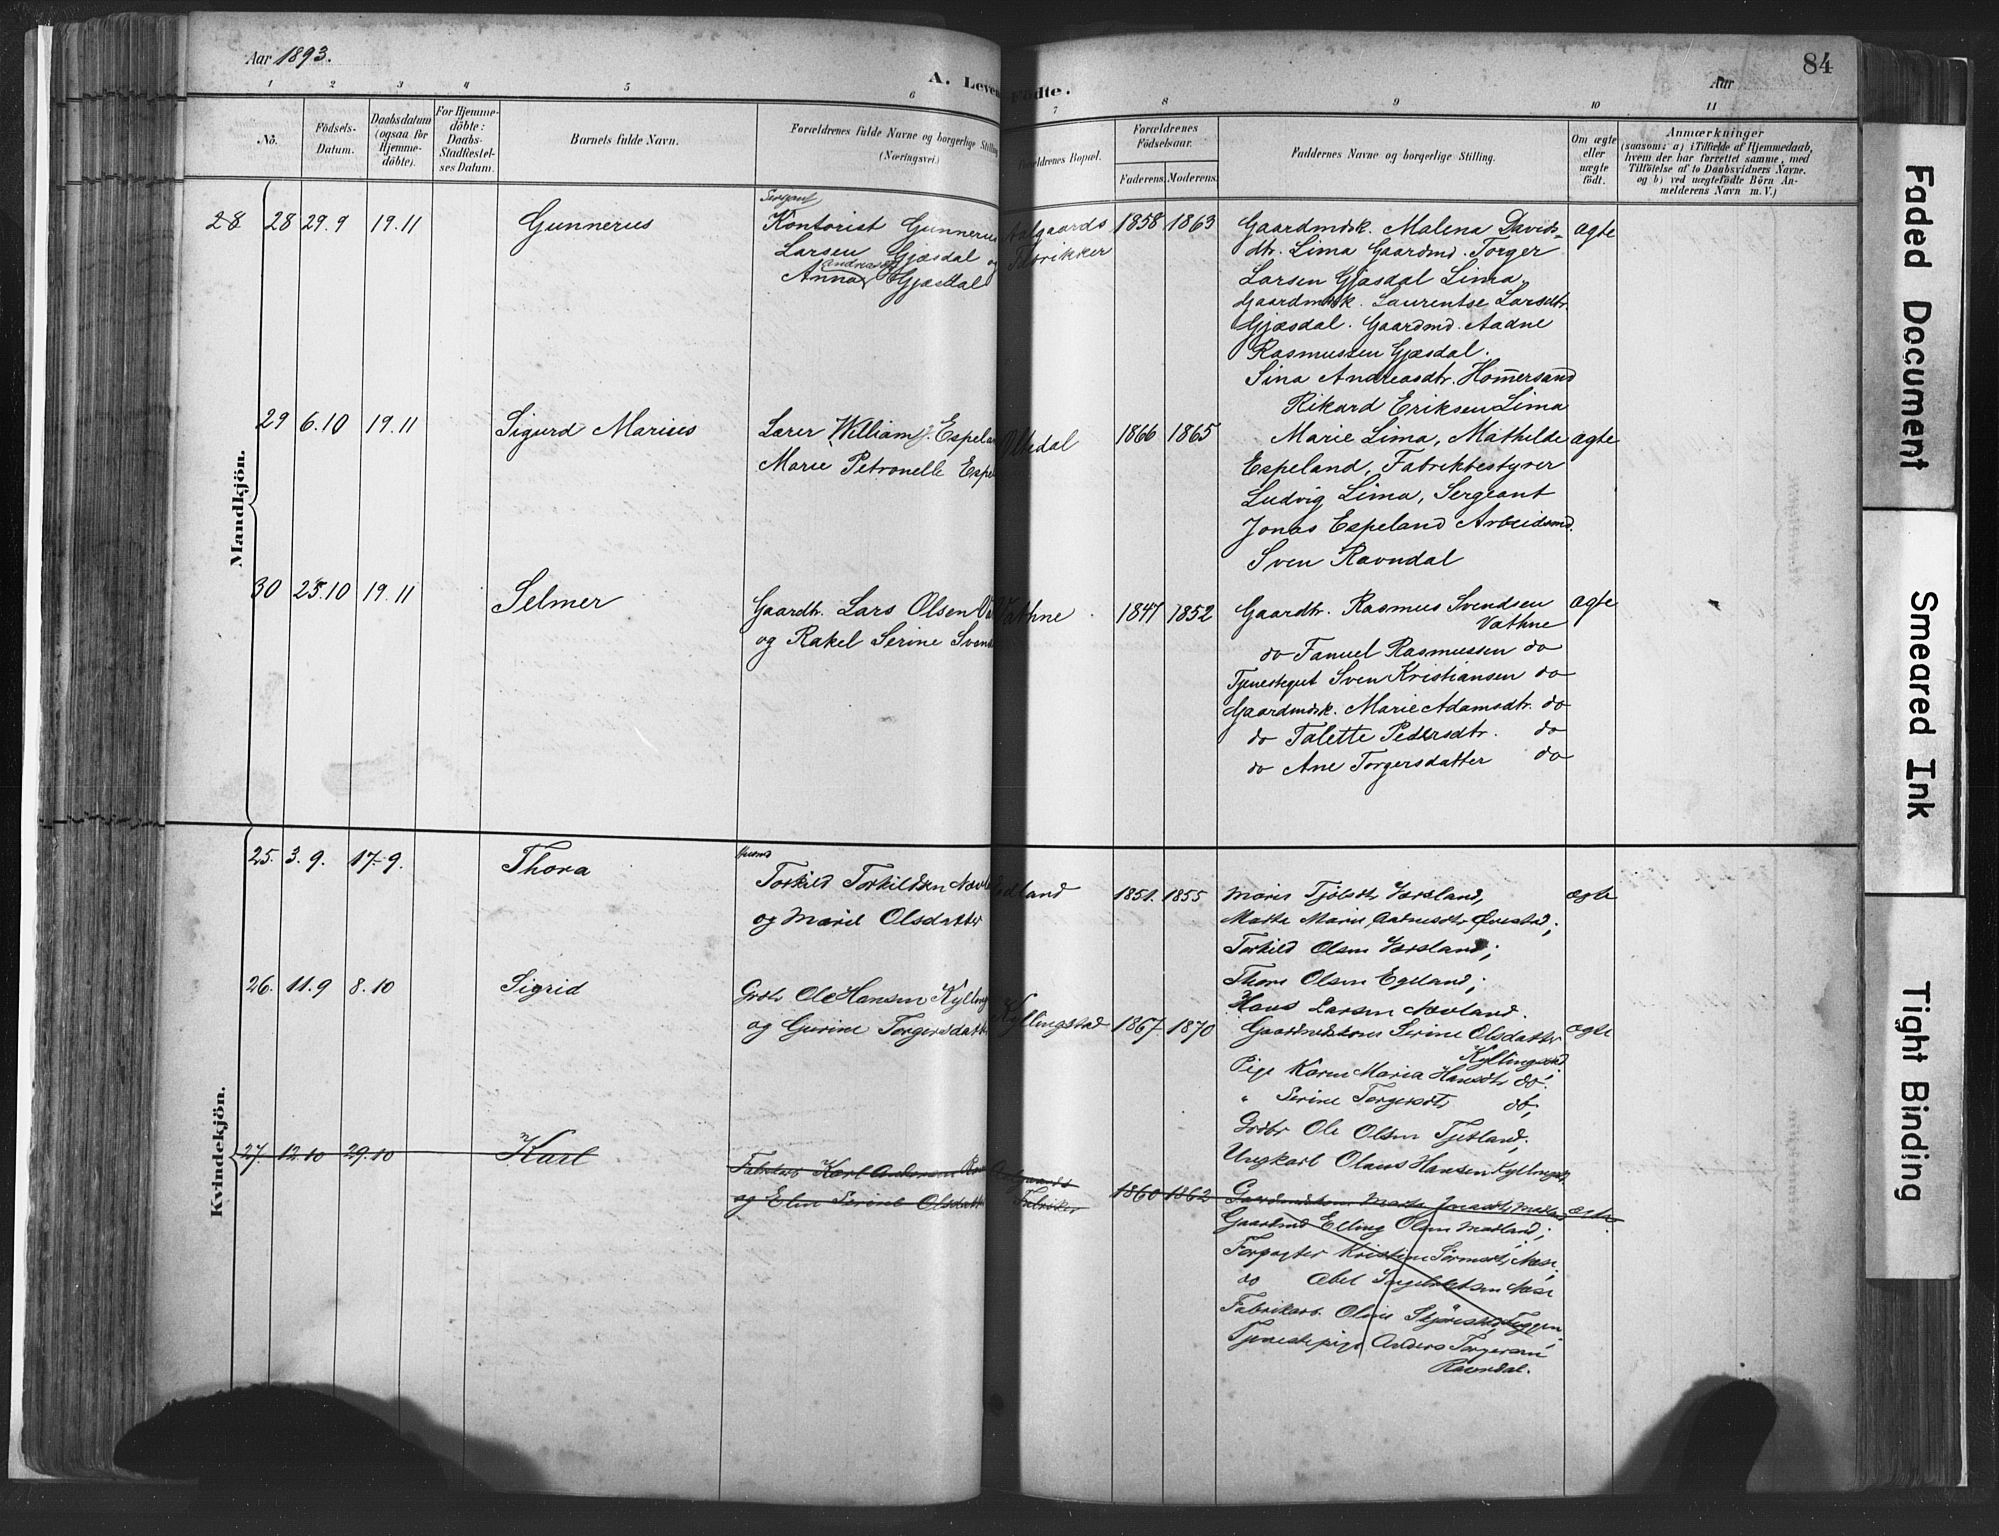 Aar 1893.
A. Levende Fødte.
Aar
84
1 2 3 4 5 6 7 8 9 10 11
No.
Födsels-
Datum.
Daabsdatum
(ogsaa for
Hjemme-
döbte).
For Hjemme-
döbte:
Daabs-
Stadfæstel-
ses Datum.
Barnets fulde Navn.
Forældrenes fulde Navne og borgerlige Stilling
(Næringsvei.)
Forældrenes Bopæl.
Forældrenes
Födselsaar.
Faderens. Moderens.
Faddernes Navne og borgerlige Stilling.
Om ægte
eller
uægte
født.
Anmærkninger
(saasom: a) i Tilfælde af Hjemmedaab,
hvem der har forrettet samme, med
Tilföielse af to Daabsvidners Navne.
og b) ved uægtefödte Börn An-
melderens Navn m. V.)
Mandkjön.
28 28 29.9 19.11 Gunnerus
Sergeant
Kontorist Gunnerus
Larsen Gjæsdal og
Andreasdtr
Anna Gjæsdal
Aalgaards
Fabrikker
1858 1863
Gaardmdsk. Malena Davids-
dtr. Lima Gaardmd. Torger
Larsen Gjæsdal Lima.
Gaardmdsk. Laurentse Larsdtr.
Gjæsdal. Gaardmd. Aadne
Rasmussen Gjæsdal.
Sina Andreasdtr. Homersand
Rikard Eriksen Lima
ægte
29 6.10 19.11 Sigurd Marius
Lærer William J. Espeland
Marie Petronelle Espe
Oltedal
1866 1865
Marie Lima, Mathilde
Espeland, Fabrikbestyrer
Ludvig Lima, Sergeant
Jonas Espeland Arbeidsmd.
Sven Ravndal
ægte
30 25.10 19.11 Selmer
Gaardbr. Lars Olsen
og Rakel Serine Svends
Vathne
1847 1852
Gaardbr. Rasmus Svendsen
Vathne
do Fanuel Rasmussen do
Tjenestegut Sven Kristiansen do
Gaardmdsk. Marie Adamsdtr. do
do Talette Pedersdtr. do
do Ane Torgersdatter do
ægte
Kvindekjön.
25. 3.9. 17.9. Thora
Huusmd
Torkild Torkildsen Nævland
og Marie Olsdatter
1851. 1855
Maren Tjølsdtr. Varsland,
Marta Marie Aadnesdtr. Øvestad;
Torkild Olsen Varsland;
Thore Olsen Egeland;
Hans Larsen Nævland.
ægte
26. 11.9 8.10 Sigrid
Grdbr Ole Hansen Kylling
og Gurine Torgersdatter
Kyllingstad
1867. 1870
Gaardmdskone Serine Olsdatter
Kyllingstad.
Pige Karen Maria Hansdtr do;
" Serine Torgersdtr do,
Grdbr Ole Olsen Tjetland;
Ungkarl Olaus Hansen Kyllingst.
ægte
27. 12.10 29.10 Karl
Fabrikarb. Karl Andersen
og Elen Serine Olsdatter
Aalgaards
Fabrikker
1860 1862
Gaardmdskone Marta
Gaardmd Elling Olsen Madland;
Forpagter Kristine Næse;
do Abel Ingebretsen Næse
Fabrikarb. Olene
Tjenestepige Anders Torgersen
Ravndal.
ægte
Faded Document
Smeared Ink
Tight Binding